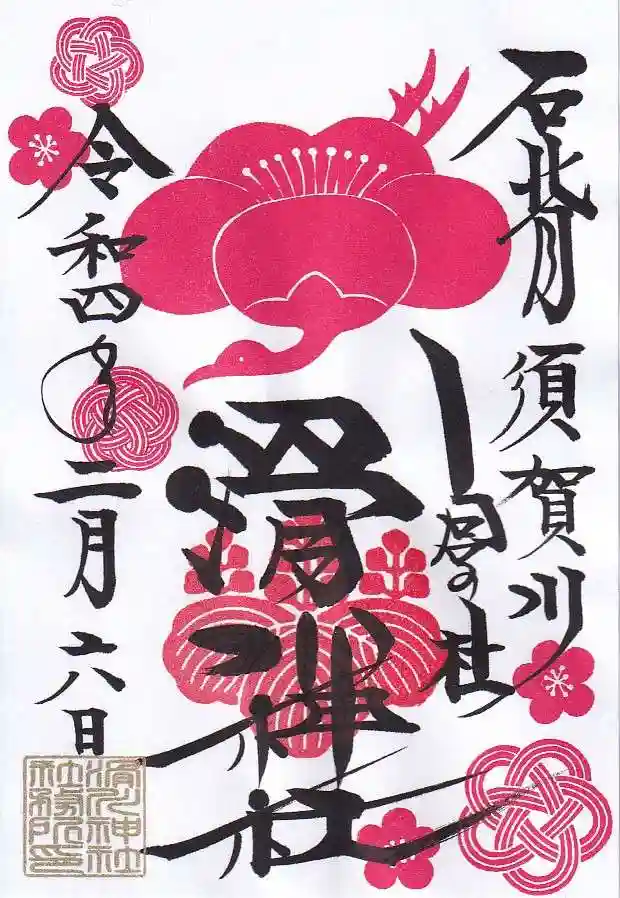 石背 須賀川
の社
滑川神社
令和四年二月六日
滑川神社
社務所印